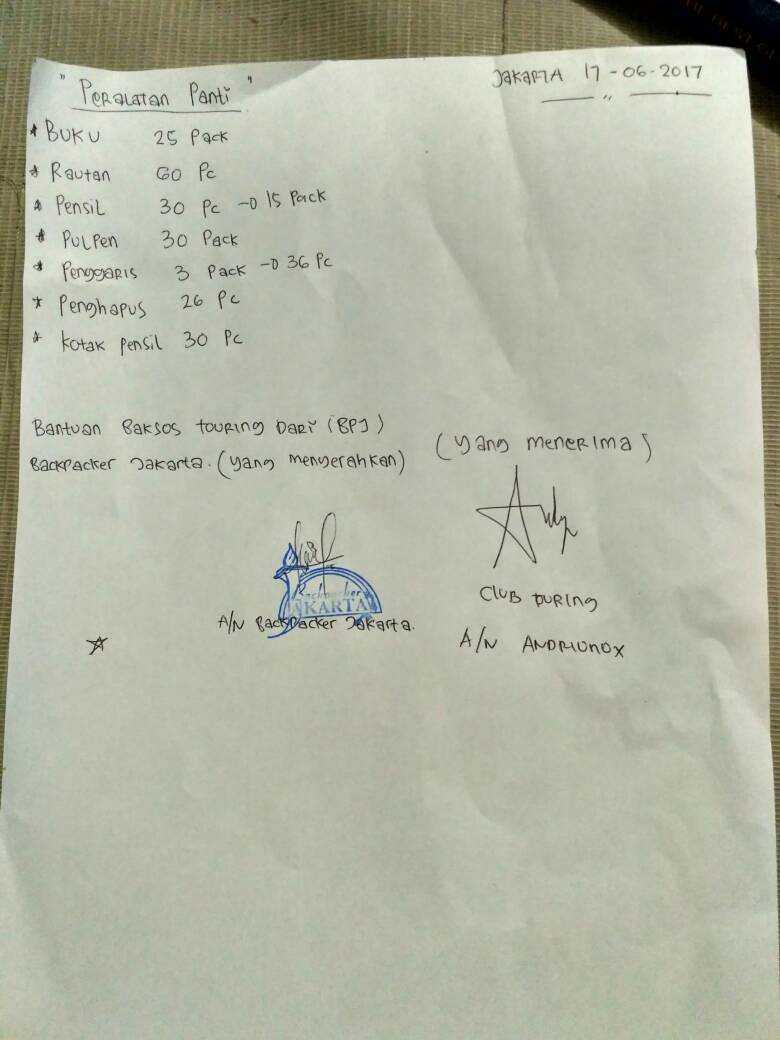 " Peralatan Panti "
Jakarta 17-06-2017
* Buku 25 Pack
* Rautan 60 Pc
* Pensil 30 Pc → 15 Pack
* Pulpen 30 Pack
* Penggaris 3 Pack → 36 Pc
* Penghapus 26 Pc
* Kotak Pensil 30 Pc
Bantuan Baksos touring Dari (BPJ)
Backpacker Jakarta. (yang menyerahkan)
(yang menerima)
Backpacker
JAKARTA
A/N Backpacker Jakarta.
Club turing
A/N